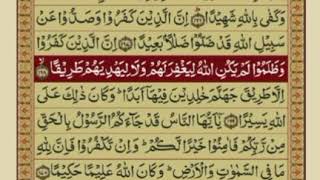 وَكَفٰى بِاللّٰهِ شَهِيْدًا ﴿١٦٦﴾ اِنَّ الَّذِيْنَ كَفَرُوْا وَصَدُّوْا عَنْ
سَبِيْلِ اللّٰهِ قَدْ ضَلُّوْا ضَلٰلًاۢ بَعِيْدًا ﴿١٦٧﴾ اِنَّ الَّذِيْنَ كَفَرُوْا
وَظَلَمُوْا لَمْ يَكُنِ اللّٰهُ لِيَغْفِرَ لَهُمْ وَلَا لِيَهْدِيَهُمْ طَرِيْقًا ﴿١٦٨﴾
اِلَّا طَرِيْقَ جَهَنَّمَ خٰلِدِيْنَ فِيْهَاۤ اَبَدًا ؕ وَكَانَ ذٰلِكَ عَلَى
اللّٰهِ يَسِيْرًا ﴿١٦٩﴾ يٰۤاَيُّهَا النَّاسُ قَدْ جَآءَكُمُ الرَّسُوْلُ بِالْحَقِّ
مِنْ رَّبِّكُمْ فَاٰمِنُوْا خَيْرًا لَّكُمْ ؕ وَاِنْ تَكْفُرُوْا فَاِنَّ لِلّٰهِ
مَا فِى السَّمٰوٰتِ وَالْاَرْضِ ؕ وَكَانَ اللّٰهُ عَلِيْمًا حَكِيْمًا ﴿١٧٠﴾